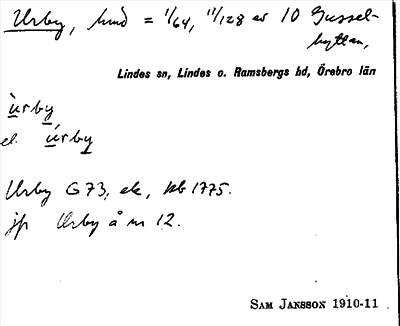 Urby, hmd = 1/64, 11/128 av 10 Gussel-
hyttan,
Lindes sn, Lindes o. Ramsbergs hd, Örebro län
ùrby
el. úrby
Urby G73, ek, kb 1775.
jfr Urby å nr 12.
SAM JANSSON 1910-11